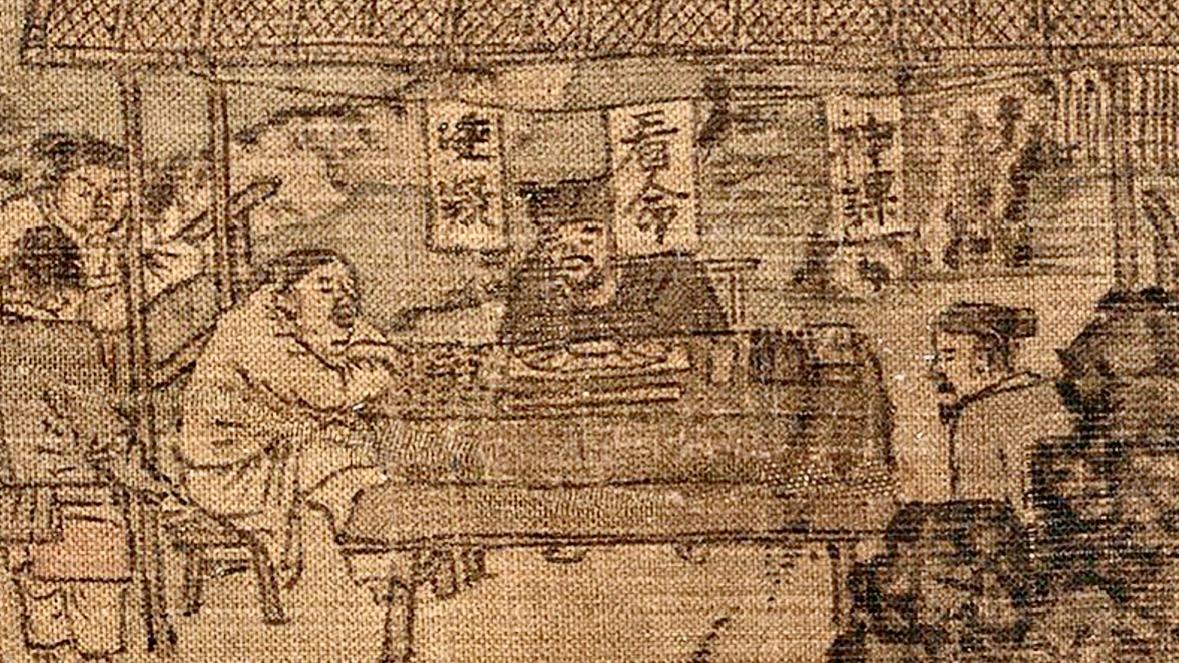 神課
看命
決疑